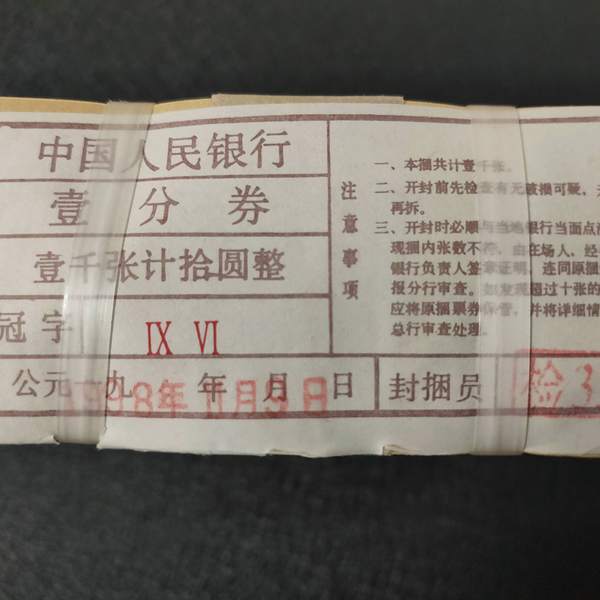 中国人民银行
壹分券
壹千张计拾圆整
冠字 IX VI
公元一九 年 月 日
1998年11月9日
封捆员
检3
注意事项
一、本捆共计壹千张。
二、开封前先检查有无破损可疑，
再拆。
三、开封时必顺与当地银行当面点
现捆内张数不符，由在场人、经
银行负责人签章证明，连同原捆
报分行审查。如发现超过十张的
应将原捆票券保管，并将详细情
总行审查处理。